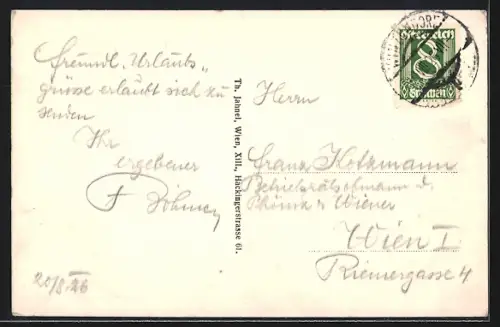 freundl. Urlaubs„
grüsse erlaubt sich zu
senden
Ihr
ergebener
F Böhme
20/8.26
Th. Jahnel, Wien, XIII., Hackingerstrasse 61.
Österreich
8
Groschen
Herrn
Franz Kotzmann
Betriebsrätsobmann d.
Phönix Wiener
Wien I
Riemergasse 4